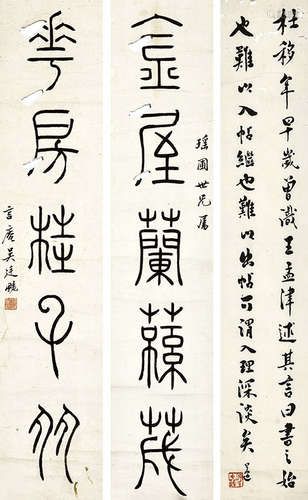 杜移年早歲曾識王孟津述其言曰書之始
也難以入帖繼也難以出帖可謂入理深談矣
瑶圃世兄屬
屋蘭蓀茂
華房桂子竹
言庵吴廷